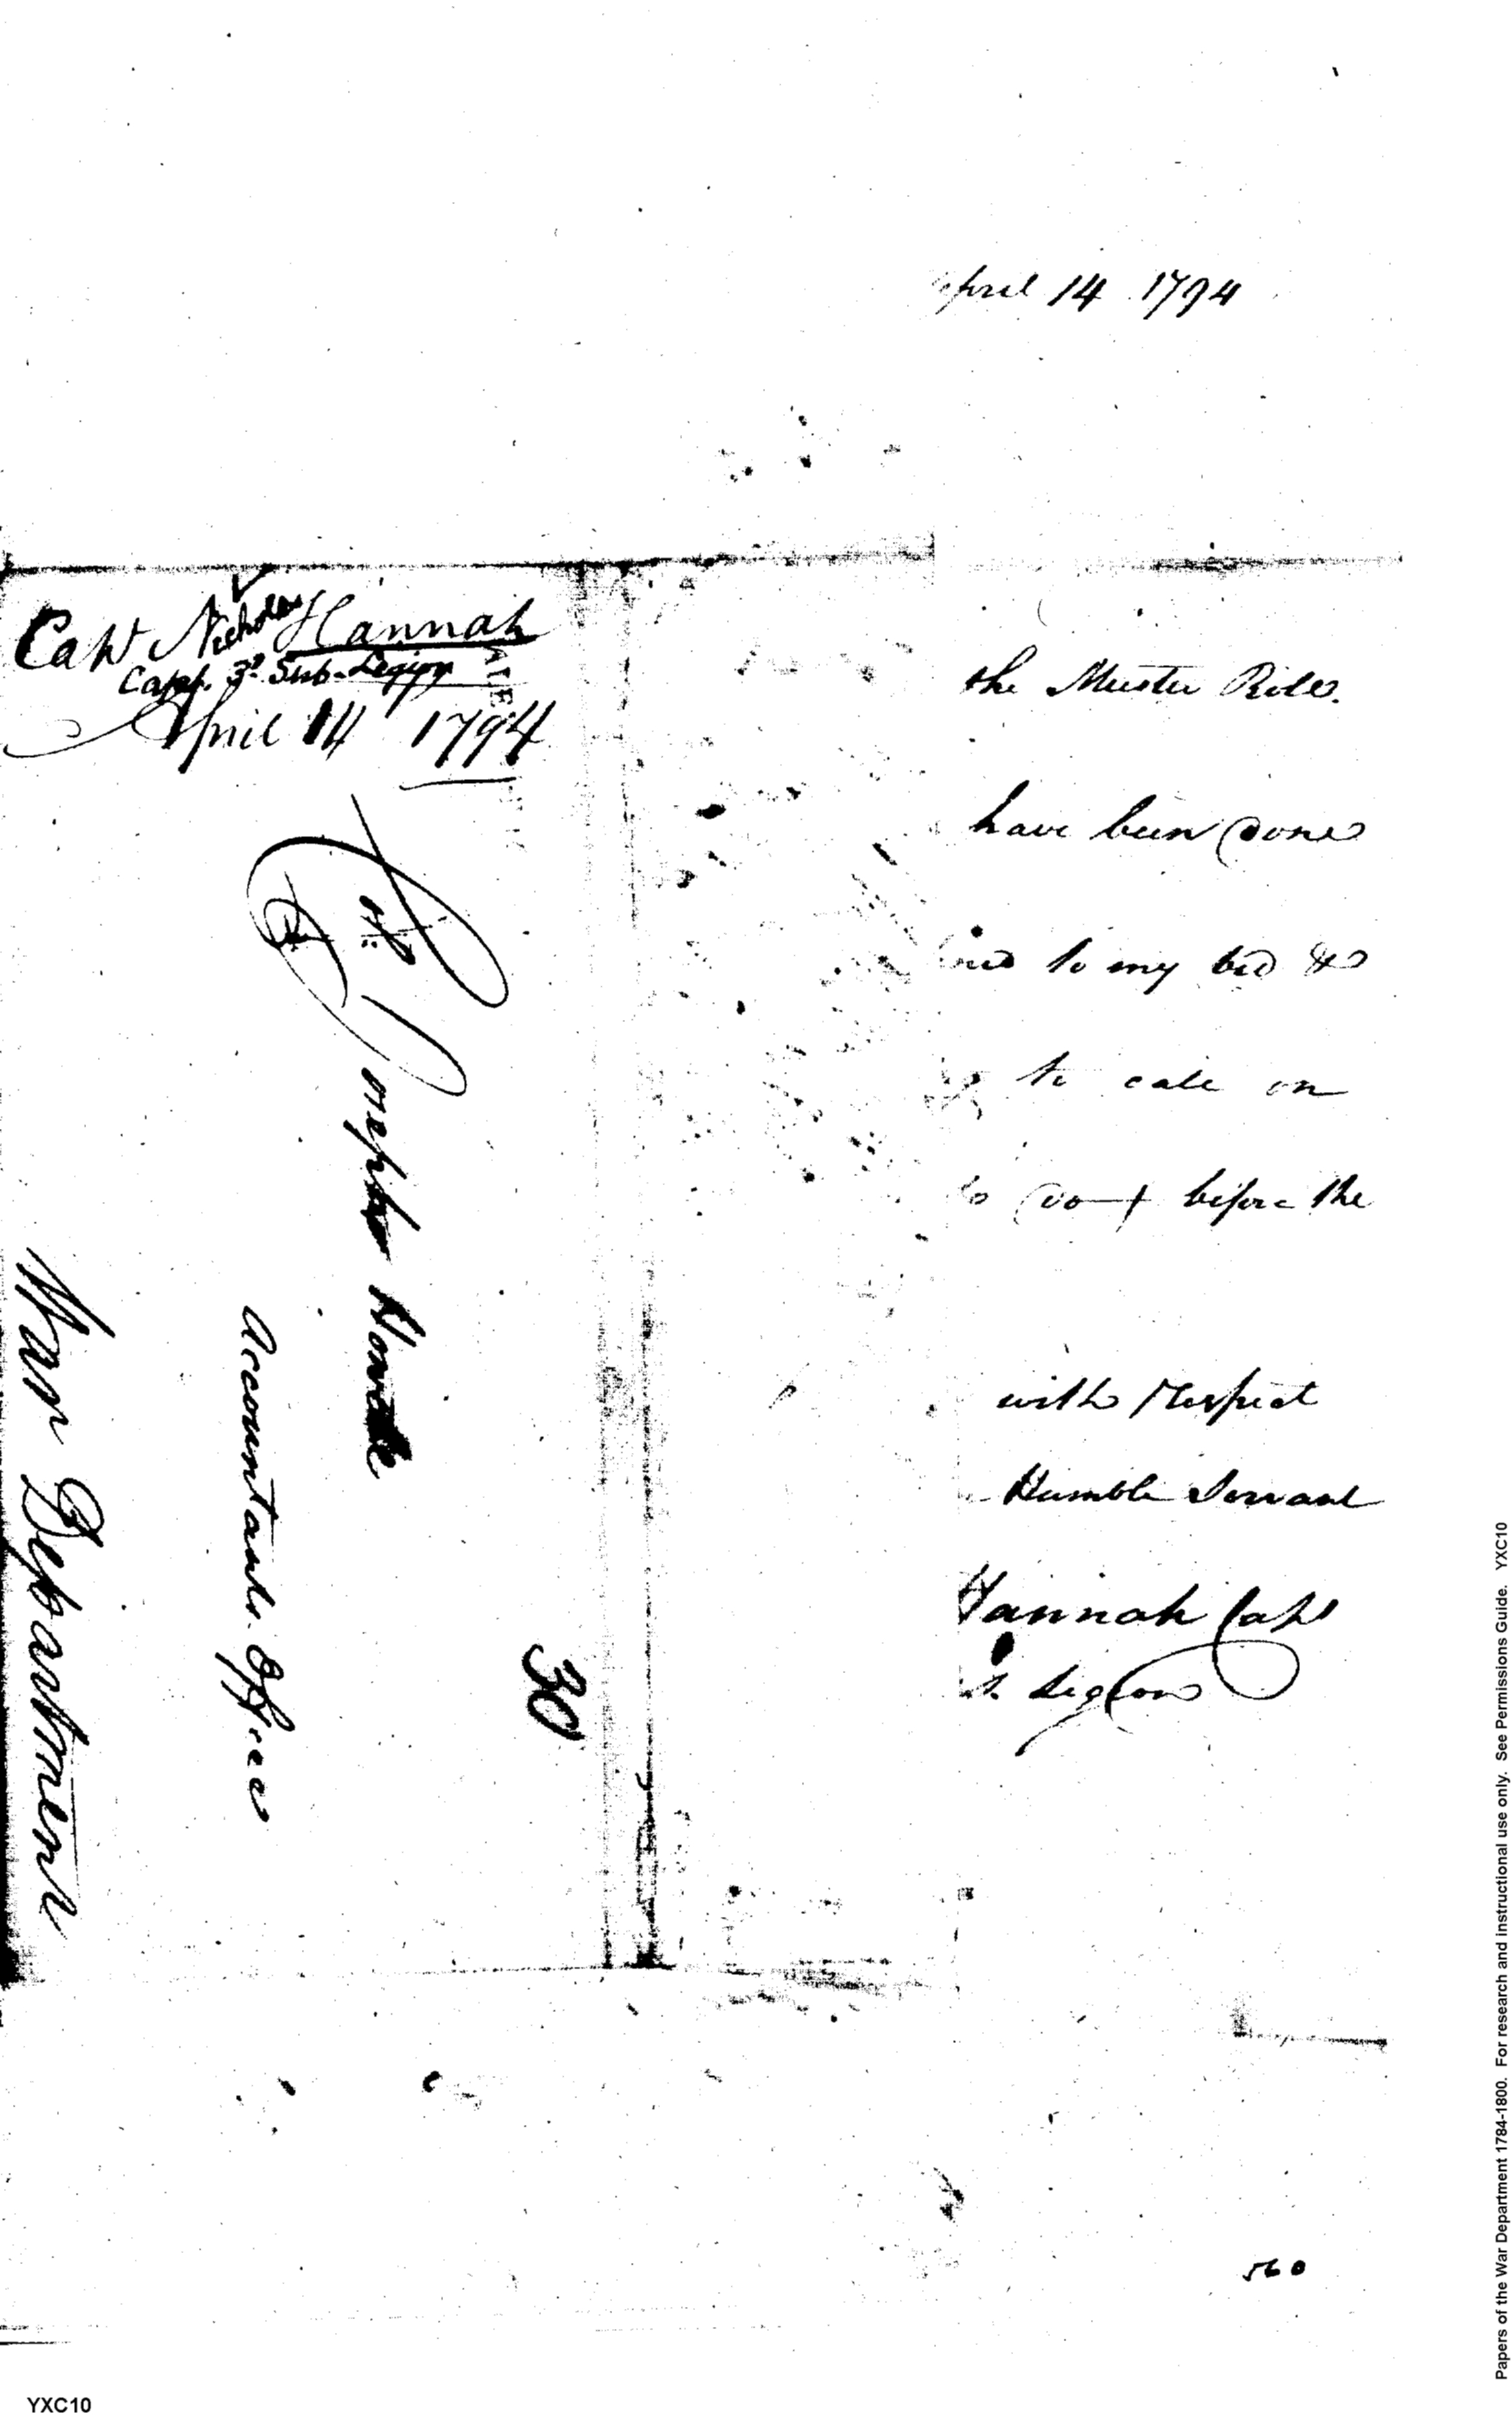 April 14 1794
the Muster Role.
have been done
to my bed &
to call on
to do it before the
with Respect
Humble Servant
Hannah Capt
Legion
Capt Nicholas Hannah
Capt. 3d Sub-Legion
April 14 1794
Joseph Howell
Accountants Office
War Department
30
560
YXC10
Papers of the War Department 1784-1800. For research and instructional use only. See Permissions Guide. YXC10